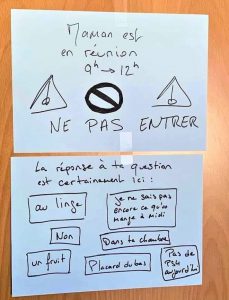 Maman est
en réunion
9h → 12h
NE PAS ENTRER
La réponse à ta question
est certainement ici :
au linge
je ne sais pas
encore ce qu'on
mange à midi
Non
Dans ta chambre
un fruit
Placard du bas
Pas de
PS4
aujourd'hui